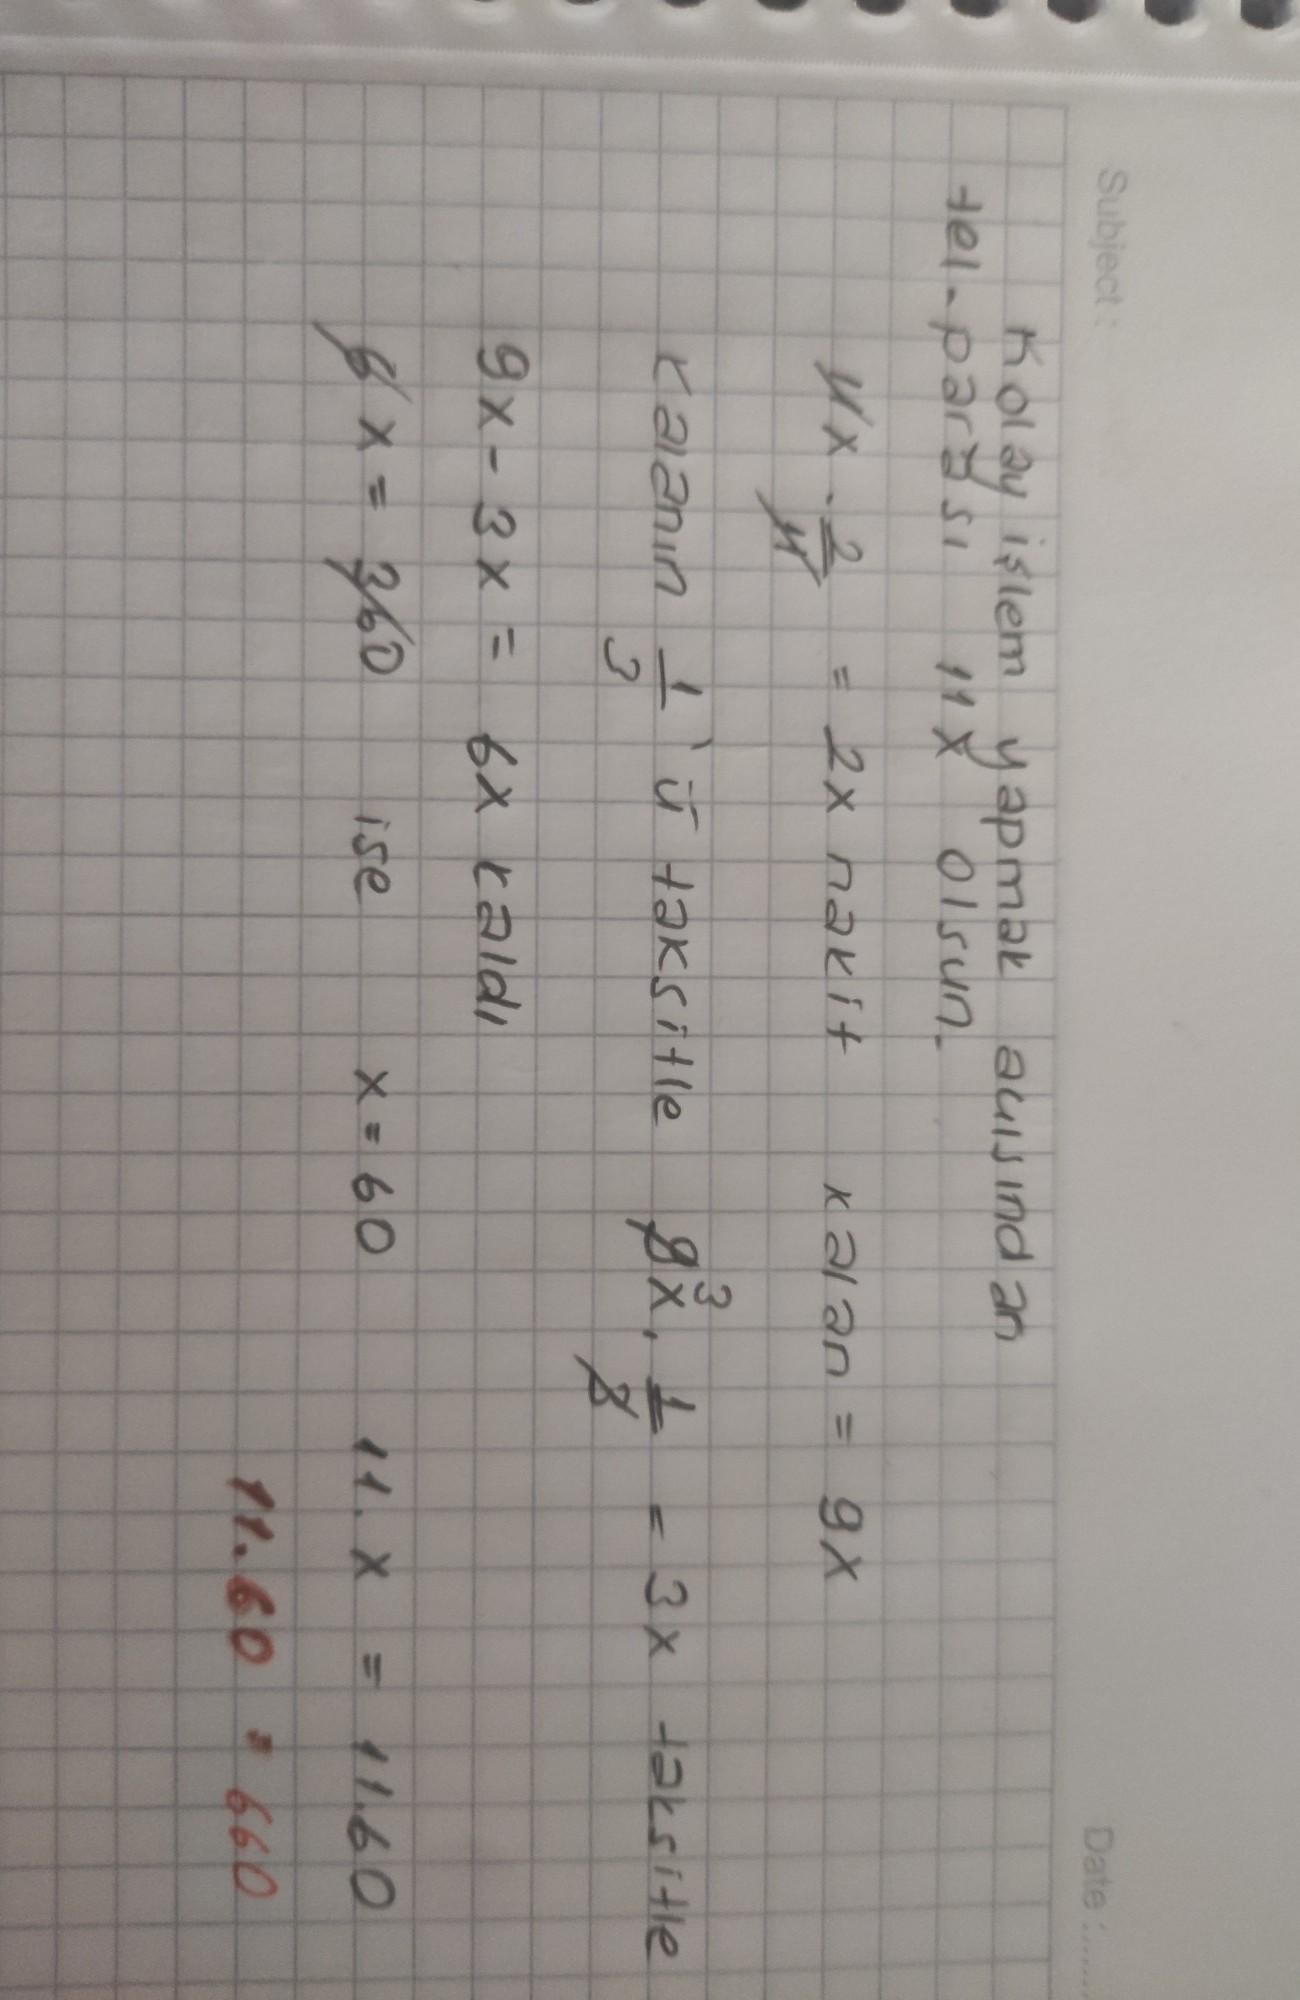 Subject: Date:........
Kolay işlem yapmak açısından
tel-parası 11x olsun.
11x . 2/11 = 2x nakit kalan = 9x
kalanın 1/3 'ü taksitle 9x . 1/3 = 3x taksitle
3
9x - 3x = 6x kaldı
6x = 360 ise x = 60 11.x = 11.60
11.60 = 660